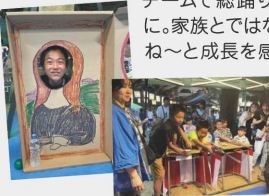 チームで総踊り
に。家族とではな
ね〜と成長を感